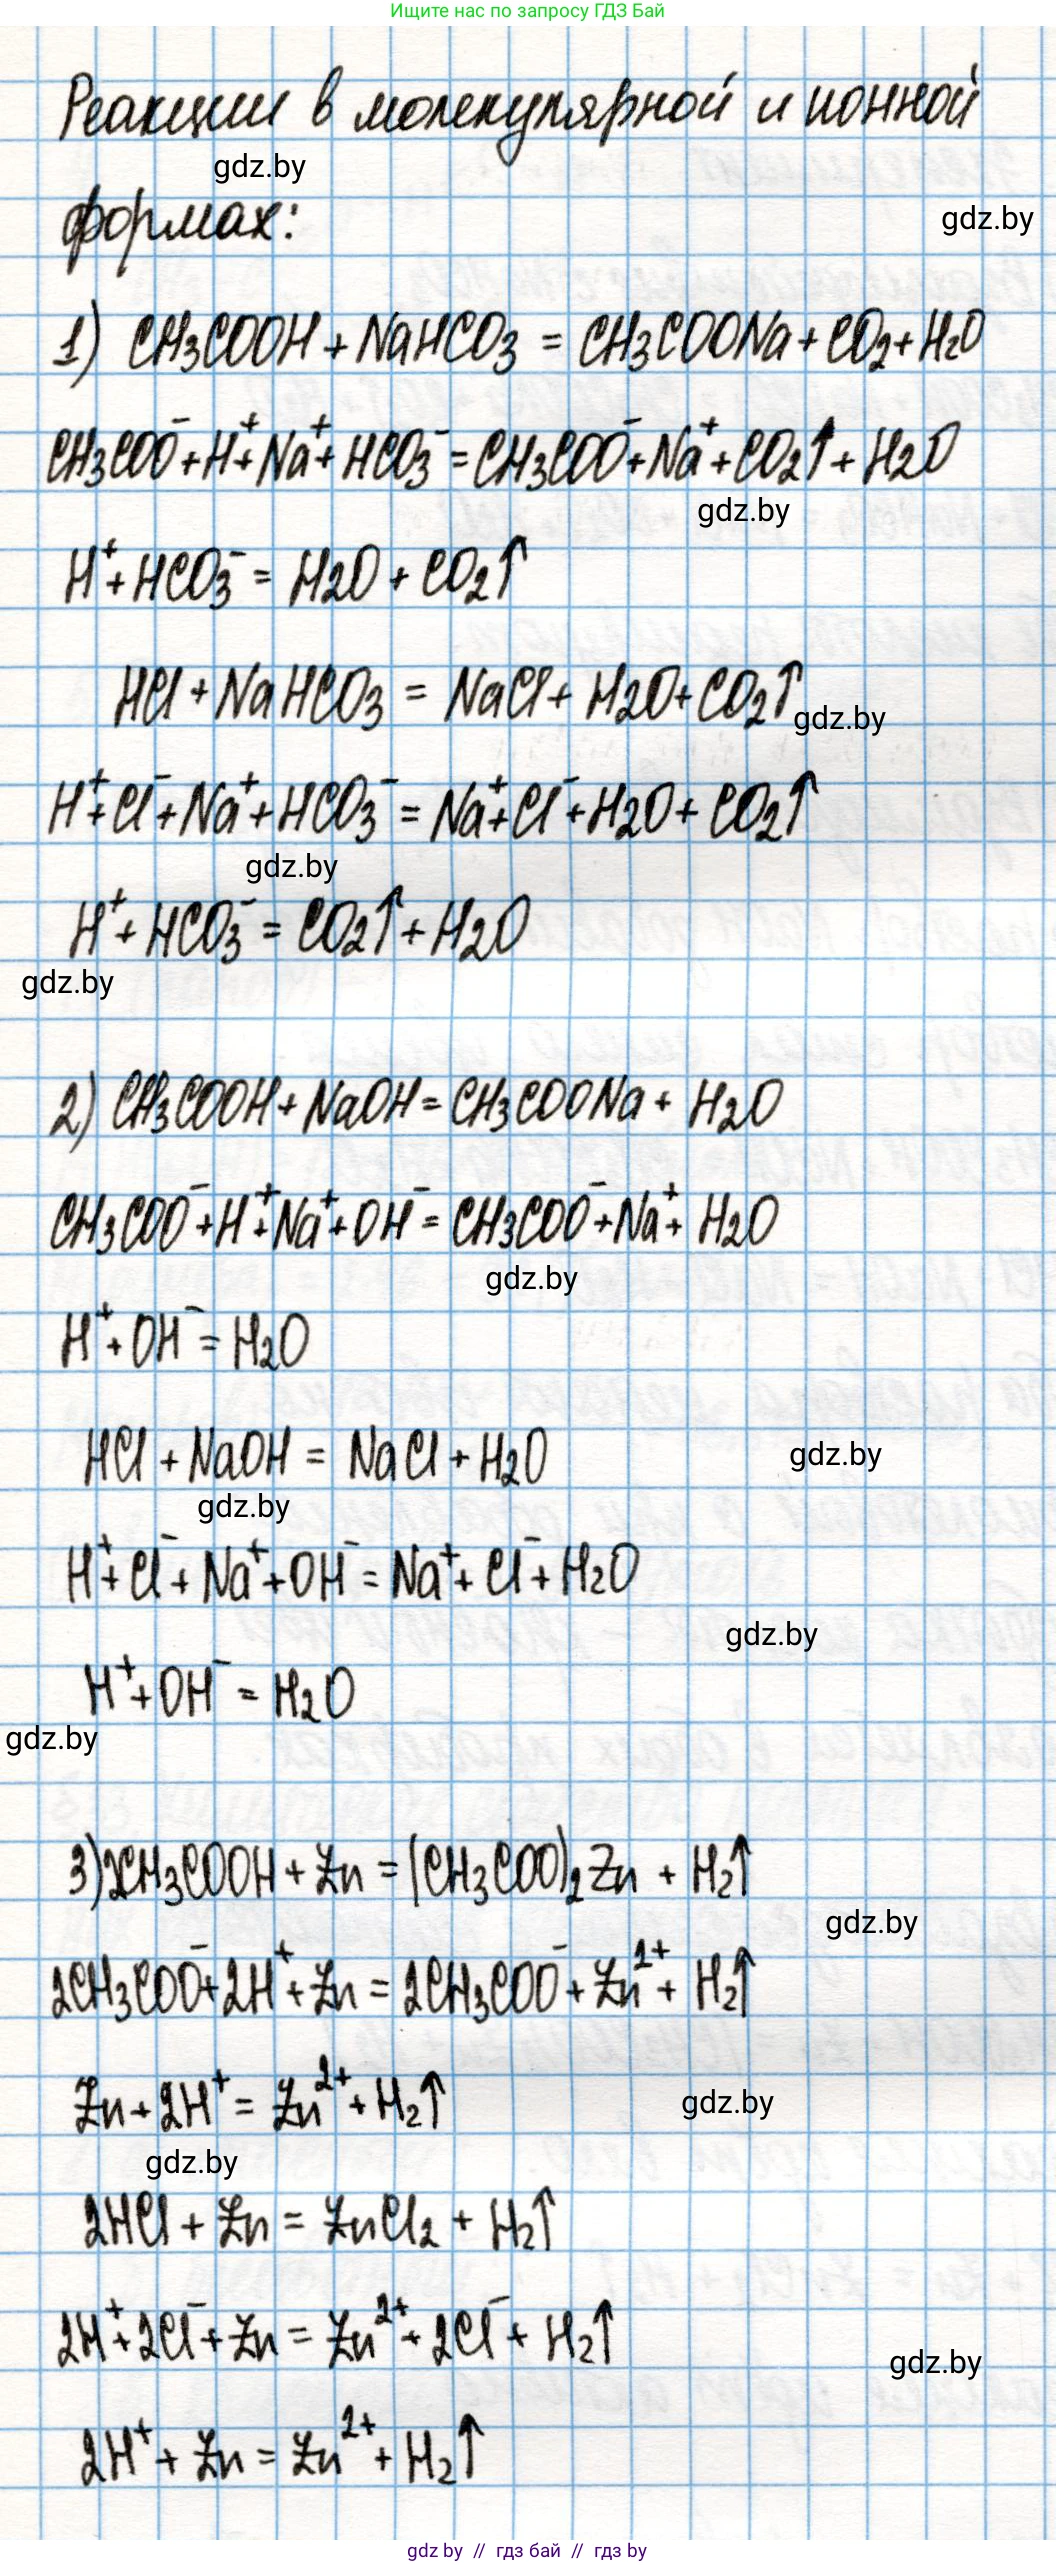 Ищите нас по запросу ГДЗ Бай
Реакции в молекулярной и ионной
gdz.by
формах:
gdz.by
1) CH₃COOH + NaHCO₃ = CH₃COONa + CO₂ + H₂O
CH₃COO⁻ + H⁺ + Na⁺ + HCO₃⁻ = CH₃COO⁻ + Na⁺ + CO₂↑ + H₂O
gdz.by
H⁺ + HCO₃⁻ = H₂O + CO₂↑
HCl + NaHCO₃ = NaCl + H₂O + CO₂↑
gdz.by
H⁺ + Cl⁻ + Na⁺ + HCO₃⁻ = Na⁺ + Cl⁻ + H₂O + CO₂↑
gdz.by
H⁺ + HCO₃⁻ = CO₂↑ + H₂O
gdz.by
2) CH₃COOH + NaOH = CH₃COONa + H₂O
CH₃COO⁻ + H⁺ + Na⁺ + OH⁻ = CH₃COO⁻ + Na⁺ + H₂O
gdz.by
H⁺ + OH⁻ = H₂O
HCl + NaOH = NaCl + H₂O
gdz.by
gdz.by
H⁺ + Cl⁻ + Na⁺ + OH⁻ = Na⁺ + Cl⁻ + H₂O
gdz.by
H⁺ + OH⁻ = H₂O
gdz.by
3) 2CH₃COOH + Zn = (CH₃COO)₂Zn + H₂↑
gdz.by
2CH₃COO⁻ + 2H⁺ + Zn = 2CH₃COO⁻ + Zn²⁺ + H₂↑
Zn + 2H⁺ = Zn²⁺ + H₂↑
gdz.by
gdz.by
2HCl + Zn = ZnCl₂ + H₂↑
2H⁺ + 2Cl⁻ + Zn = Zn²⁺ + 2Cl⁻ + H₂↑
gdz.by
2H⁺ + Zn = Zn²⁺ + H₂↑
gdz by // гдз бай // гдз by